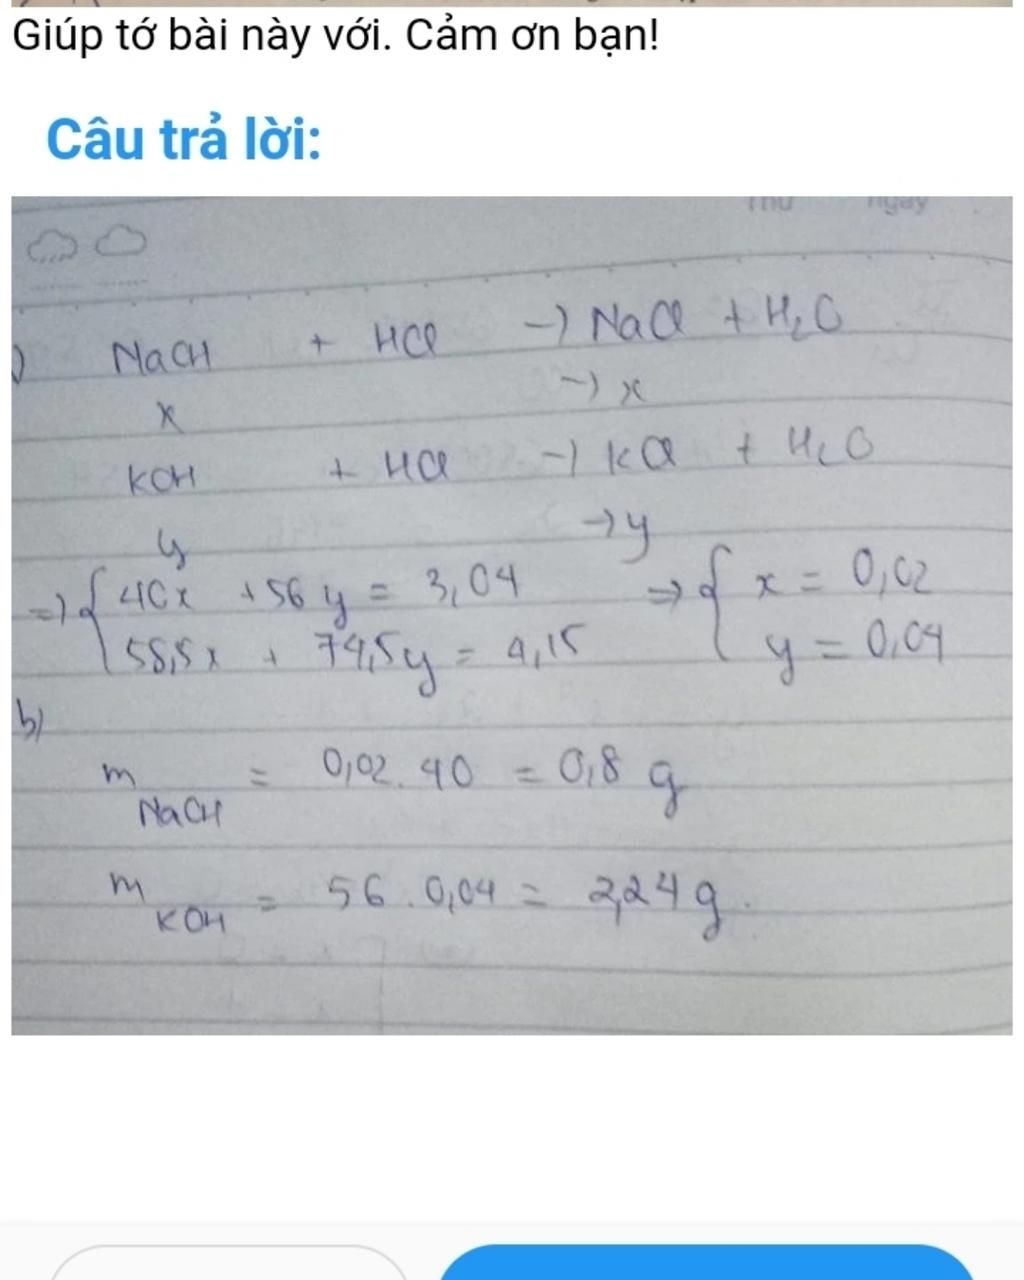 Giúp tớ bài này với. Cảm ơn bạn!
Câu trả lời:
Thứ ngày
) NaOH + HCl -> NaCl + H₂O
x -> x
KOH + HCl -> KCl + H₂O
y -> y
=> { 40x + 56y = 3,04 => { x = 0,02
58,5x + 74,5y = 4,15 y = 0,04
b)
m NaOH = 0,02 . 40 = 0,8 g
m KOH = 56 . 0,04 = 2,24 g.